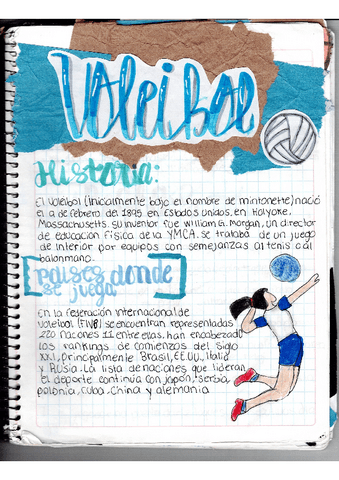 Voleibol
Historia:
El voleibol (inicialmente bajo el nombre de mintonette) nació
el 9 de febrero del 1895 en Estados unidos, en Holyoke,
Massachusetts. su inventor fue william G. Morgan, un director
de educación física de la YMCA. se trataba de un juego
de interior por equipos con semejanzas al tenis o al
balonmano.
Paises donde
se juega
En la federación internacional de
voleibol (FIVB) se encuentran representadas
220 naciones 11 entre ellas, han encabezado
los rankings de comienzos del siglo
XXI, principalmente Brasil, EE.UU., Italia
y Rusia. La lista de naciones que lideran
el deporte continúa con japón, serbia,
polonia, cuba, china y alemania.